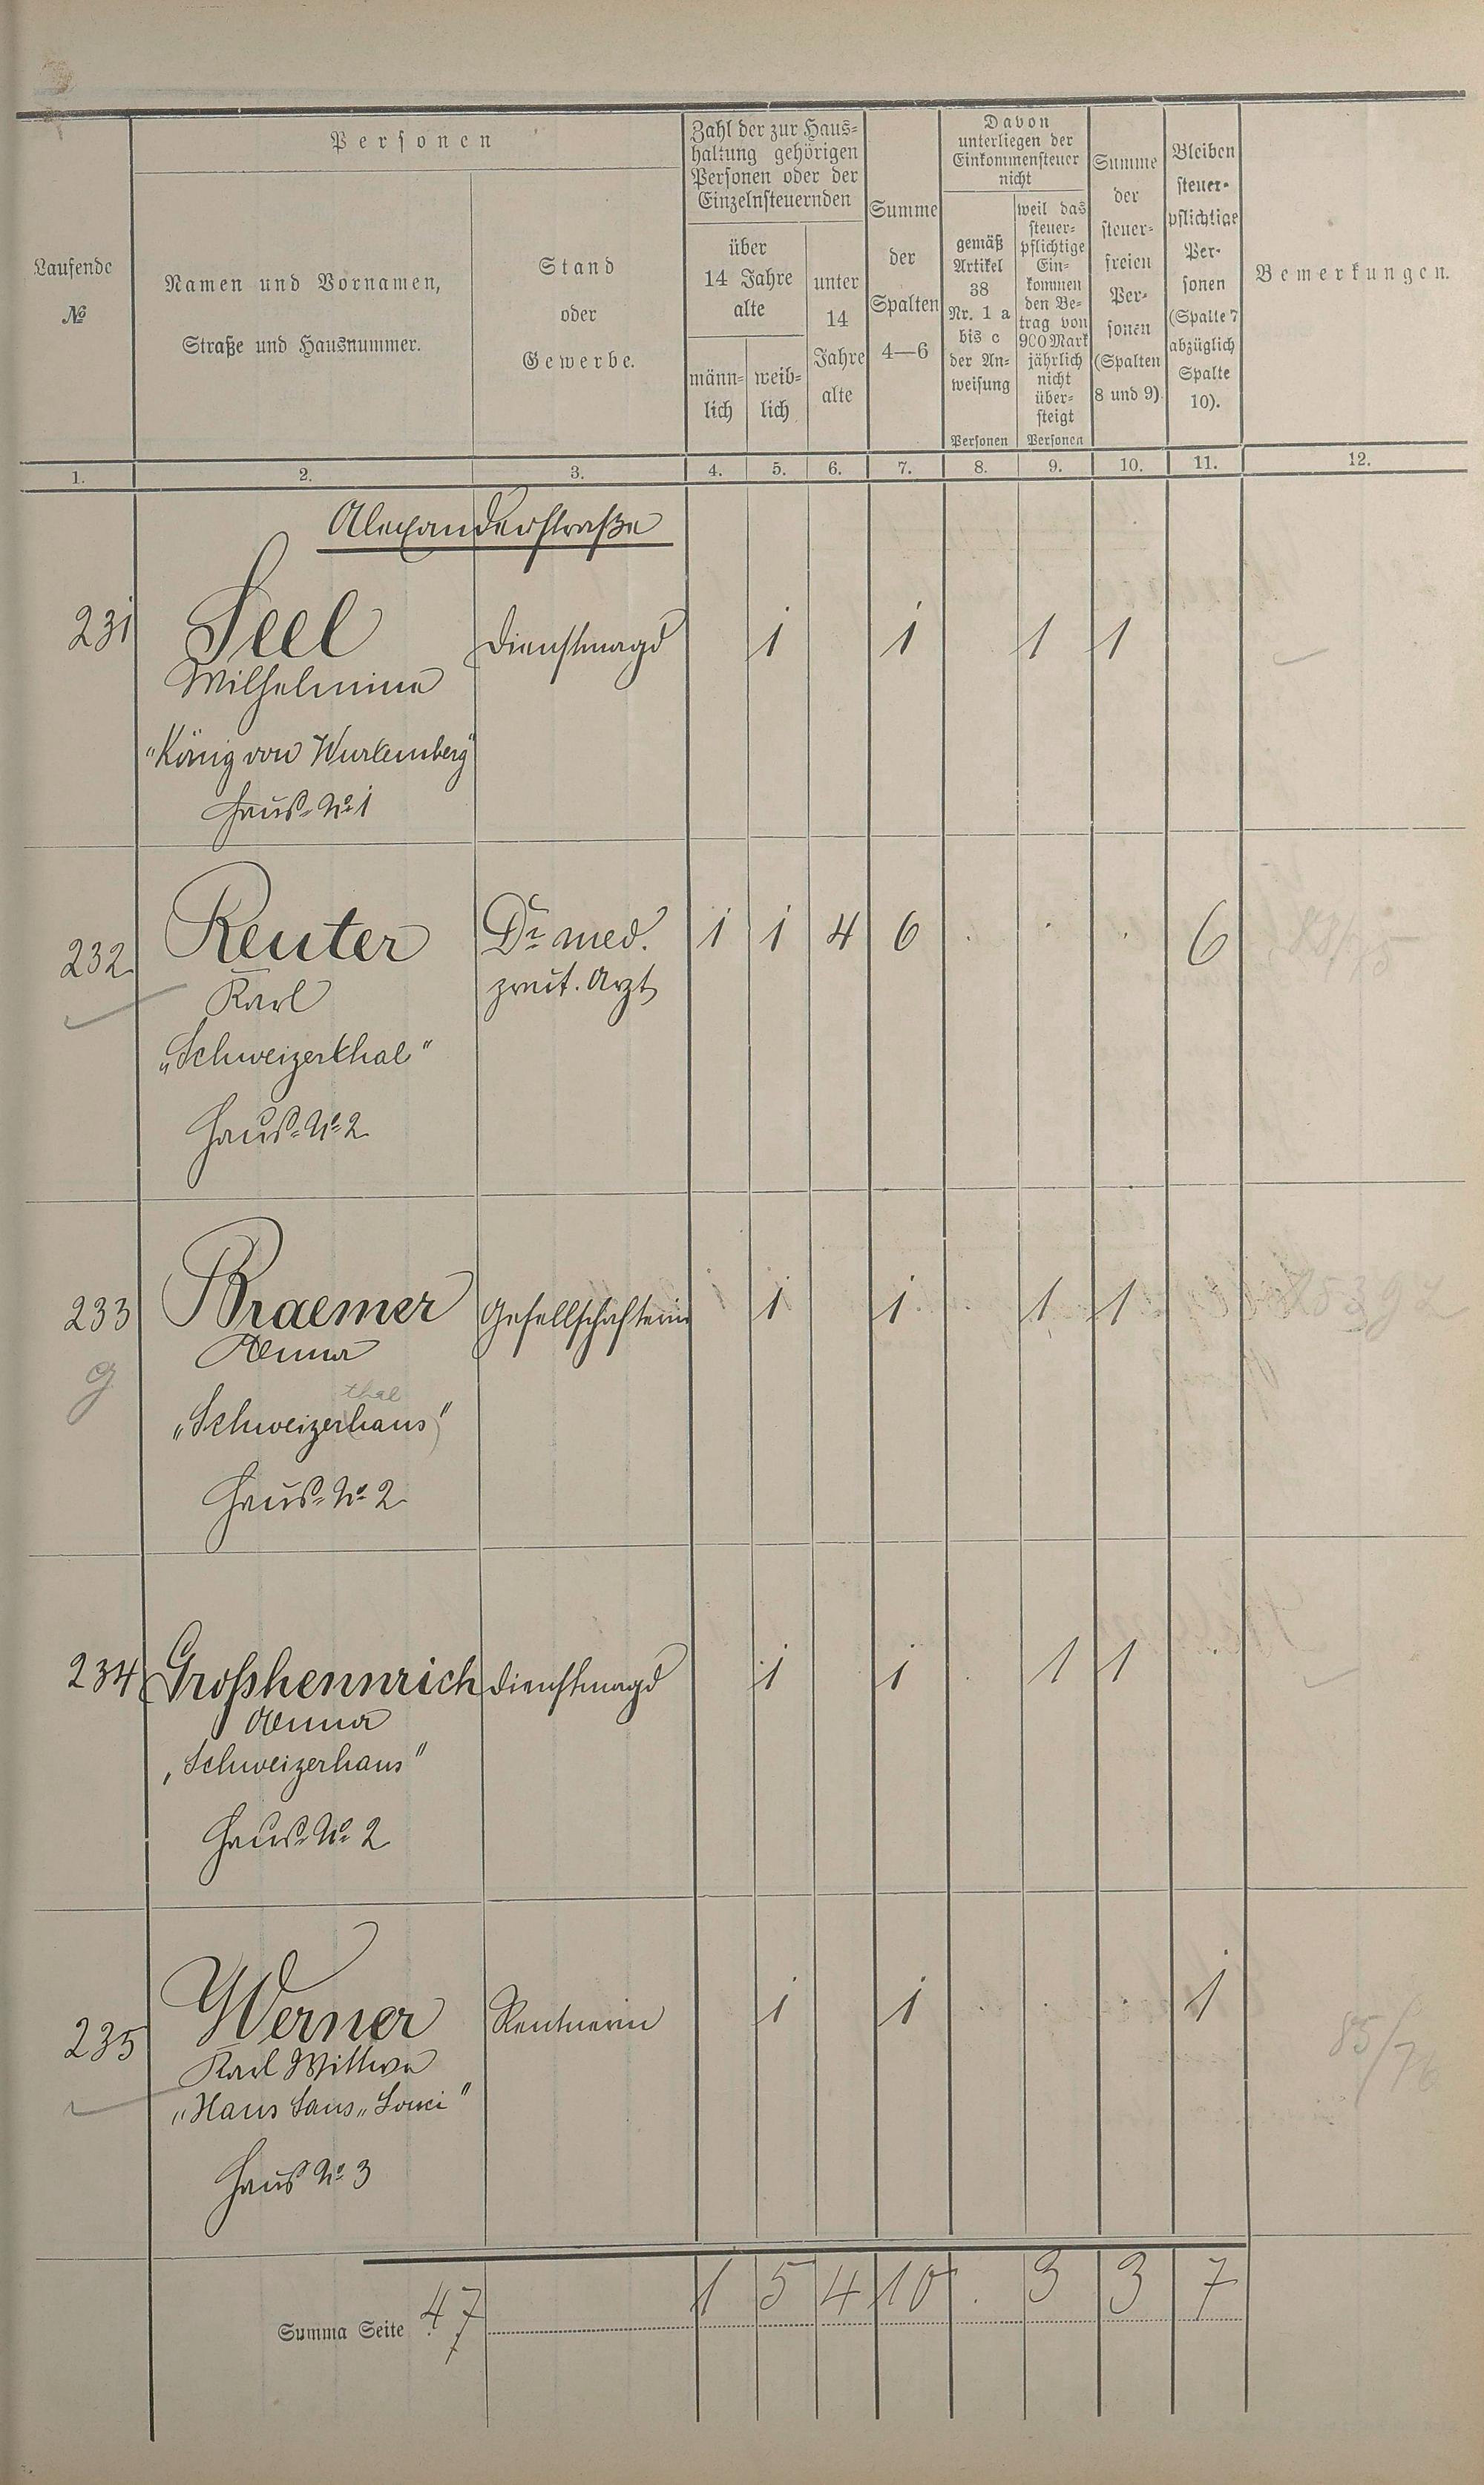 Personen
Zahl der zur Haus-
haltung gehörigen
Personen oder der
Einzelnsteuernden
Davon
unterliegen der
Einkommensteuer
nicht
Laufende
№
Namen und Vornamen,
Straße und Hausnummer.
Stand
oder
Gewerbe.
über
14 Jahre
alte
männ-
lich
weib-
lich
unter
14
Jahre
alte
Summe
der
Spalten
4—6
gemäß
Artikel
38
Nr. 1 a
bis c
der An-
weisung
Personen
weil das
steuer-
pflichtige
Ein-
kommen
den Be-
trag von
900 Mark
jährlich
nicht
über-
steigt
Personen
Summe
der
steuer-
freien
Per-
sonen
(Spalten
8 und 9).
Bleiben
steuer-
pflichtige
Per-
sonen
(Spalte 7
abzüglich
Spalte
10).
Bemerkungen.
1. 2. 3. 4. 5. 6. 7. 8. 9. 10. 11. 12.
Alexanderstraße
231 Seel Dienstmagd 1 1 1 1
Wilhelmine
"König von Würtemberg"
Haus-No 1
232 Reuter Dr med. 1 1 4 6 . . . 6 88/75
Karl prakt. Arzt
"Schweizerthal"
Haus-No 2
233 Braemer Gesellschafterin 1 1 . 1 1
g Anna
thal
"Schweizerhaus"
Haus-No 2
234 Groshennrich Dienstmagd 1 1 . 1 1 .
Anna
"Schweizerhaus"
Haus-No 2
235 Werner Rentnerin 1 1 . . . 1 85/76
Karl Wittwe
"Haus Sans "Souci"
Haus No 3
Summa Seite 47 1 5 4 10 . 3 3 7